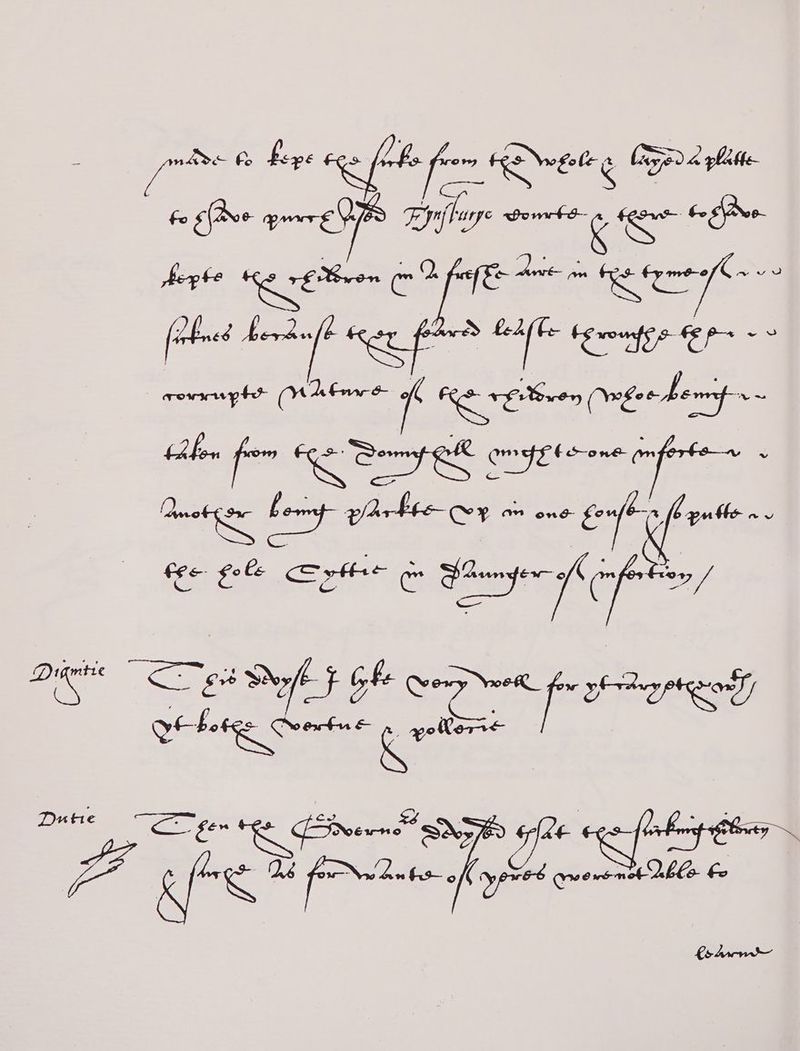 made to kepe the sicke from the whole & layed a platte
to have purchased Fynsburye courte & there to have
kepte the children in a freshe aire in the tyme of
sicknes because they feared leaste throughe the
corrupte nature of the children whoe beinge
taken from the Doungehill mighte one infecte
another beinge packte up in one house & so putte
the hole Cyttie in Daunger of infection /
Dignitie This devyse I lyke very well for yt caryethe wth
yt bothe vertue & pollecie
Dutie Then the Governors devysed that the suckinge children
& suche as for wante of yeres were not able to
learne